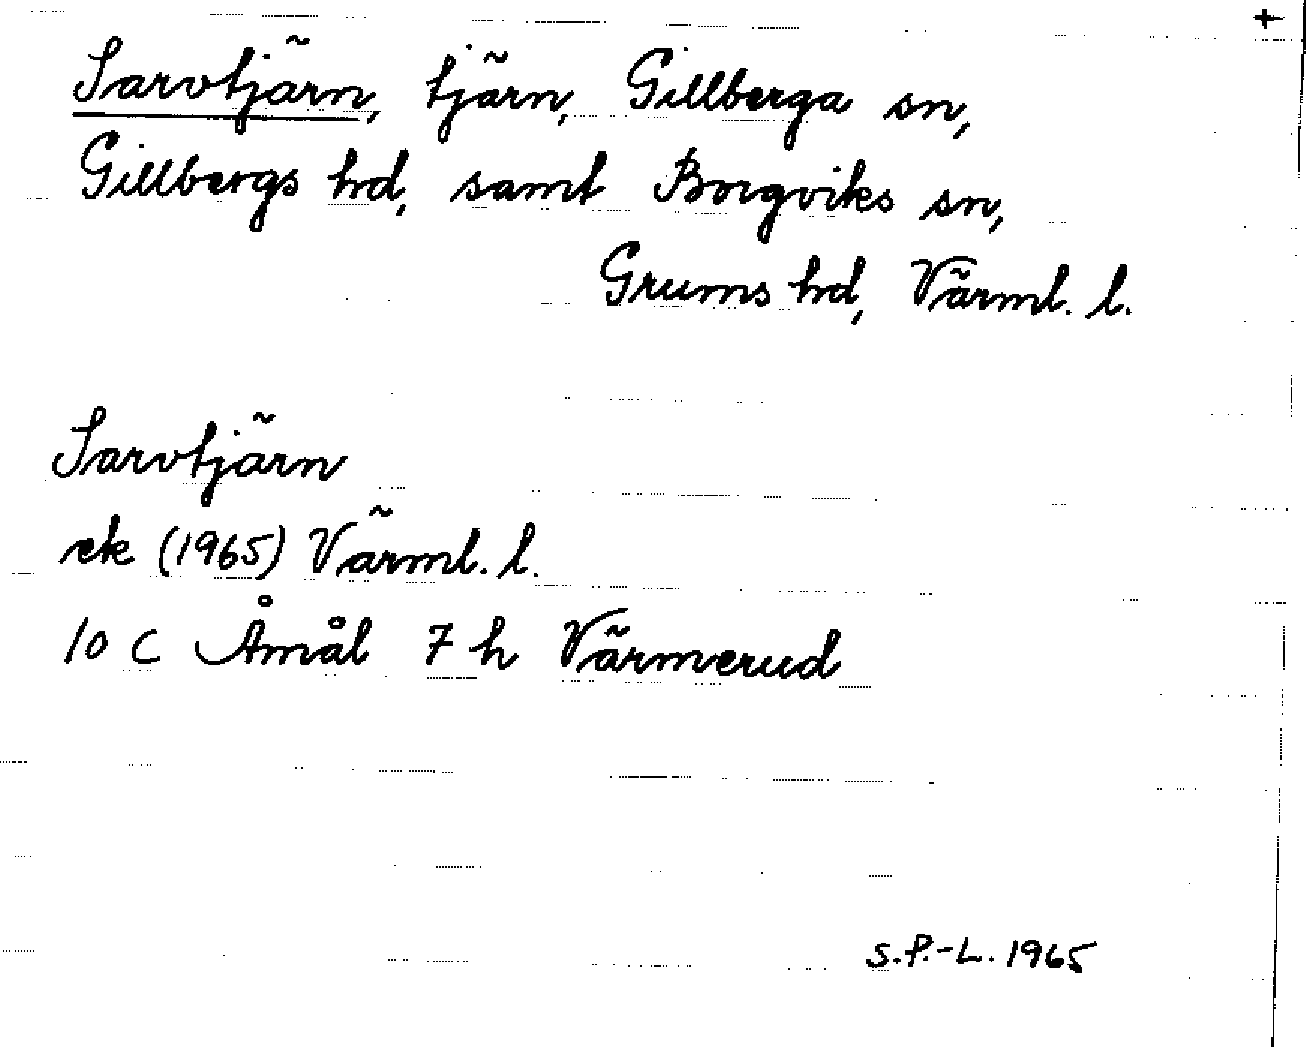 +
Sarvtjärn, tjärn, Gillberga sn,
Gillbergs hd, samt Borgviks sn,
Grums hd, Värml. l.
Sarvtjärn
ek (1965) Värml. l.
10 C Åmål 7 h Värmerud
S.P.-L. 1965